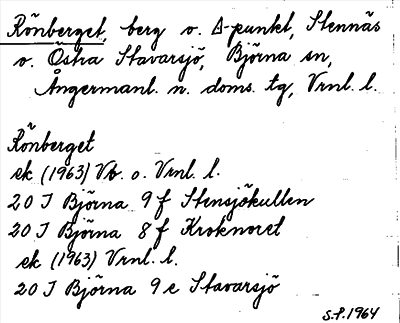 Rönberget, berg o. Δ-punkt, Stennäs
o. Östra Stavarsjö, Björna sn,
Ångermanl. n. doms. tg, Vrnl. l.
Rönberget
ek (1963) Vb. o. Vrnl. l.
20 J Björna 9 f Stensjökullen
20 J Björna 8 f Kroknoret
ek (1963) Vrnl. l.
20 J Björna 9 e Stavarsjö
S.P. 1964